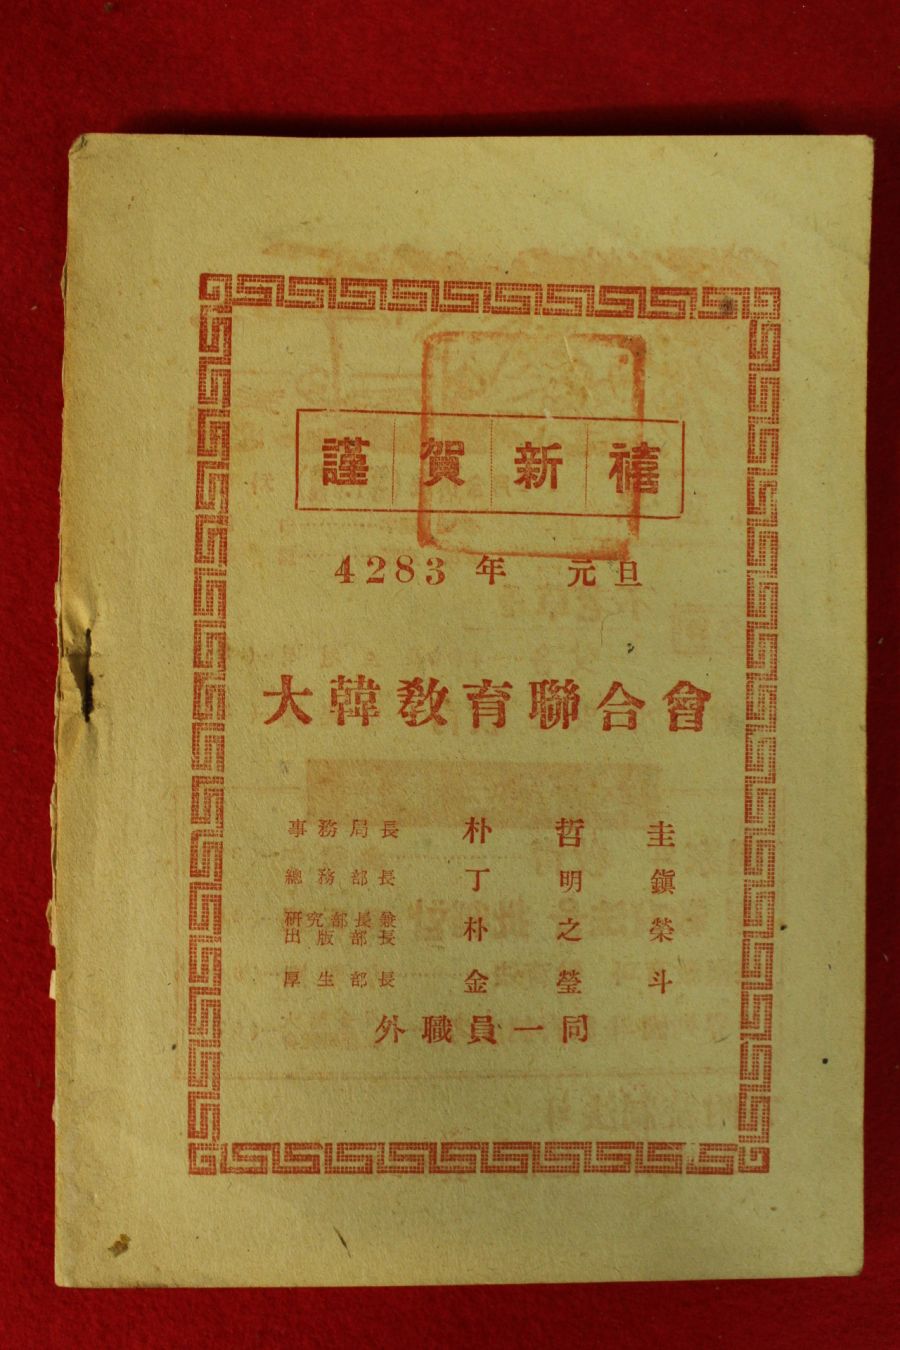 謹賀新禧
4283年 元旦
大韓敎育聯合會
事務局長 朴哲圭
總務部長 丁明鎭
硏究部長兼
出版部長 朴之榮
厚生部長 金瑩斗
外職員一同